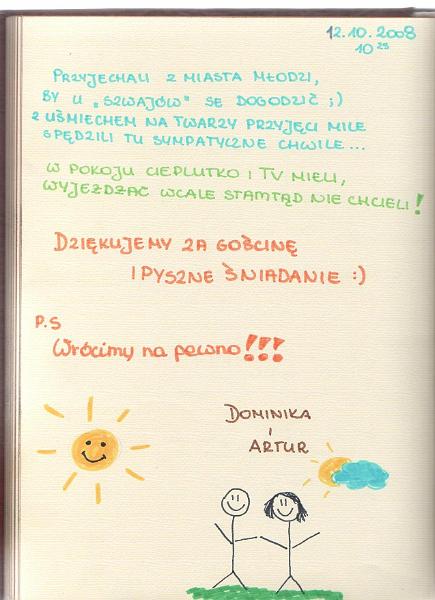 12.10.2008
10 25
PRZYJECHALI Z MIASTA MŁODZI,
BY U „SZWAJÓW" SE DOGODZIĆ ;)
Z UŚMIECHEM NA TWARZY PRZYJĘCI MILE
SPĘDZILI TU SYMPATYCZNE CHWILE...
W POKOJU CIEPLUTKO I TV MIELI,
WYJEŻDŻAĆ WCALE STAMTĄD NIE CHCIELI!
DZIĘKUJEMY ZA GOŚCINĘ
I PYSZNE ŚNIADANIE :)
P.S
Wrócimy na pewno!!!
DOMINIKA
i
ARTUR